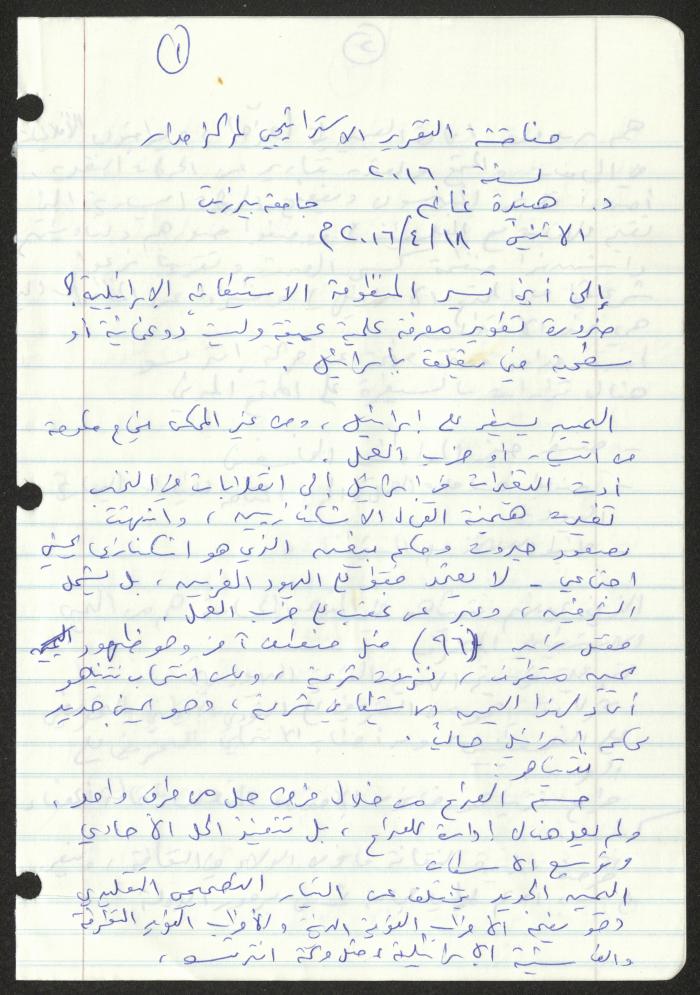 ١
مناقشة التقرير الاستراتيجي لمركز مدار
لسنة ٢٠١٦
د. هنيدة غانم جامعة بيرزيت
الاثنين ١٨/٤/٢٠١٦م
إلى أين تسير المنظومة الاستيطانية الإسرائيلية؟
ضرورة تطوير معرفة علمية عميقة وليست دوغمائية أو
سطحية فيما يتعلق بإسرائيل.
اليمين يسيطر على إسرائيل، ومن غير الممكن
من أو حزب العمل.
أدت التغيرات في إسرائيل إلى انقلابات في النخب
تغيرت هيمنة العمال الاشكنازيين، وانتهت
بصعود حيروت وحكم بيغن الذي هو اشكنازي يميني
اجتماعي - لا يعتمد فقط على اليهود الغربيين، بل يشمل
الشرقيين، وعبر عن غضب على حزب العمل.
مقتل رابين (٩٦) مثل منعطف آخر وهو ظهور
يمين متطرف، شرعية، وكان انتخاب نتنياهو
أعاد لهذا اليمين الاستيطاني شرعية، وهو يمين جديد
يحكم إسرائيل حالياً.
نتنياهو:
حسم الصراع من خلال فرض حل من طرف واحد،
ولم يعد هناك إدارة للصراع، بل تنفيذ الحل الأحادي
وتوسيع الاستيطان
اليمين الجديد يختلف عن التيار التصحيحي التقليدي
وهو يضم الأحزاب القومية الدينية والأحزاب القومية المتطرفة
والفاشية الإسرائيلية، مثل حركة ،